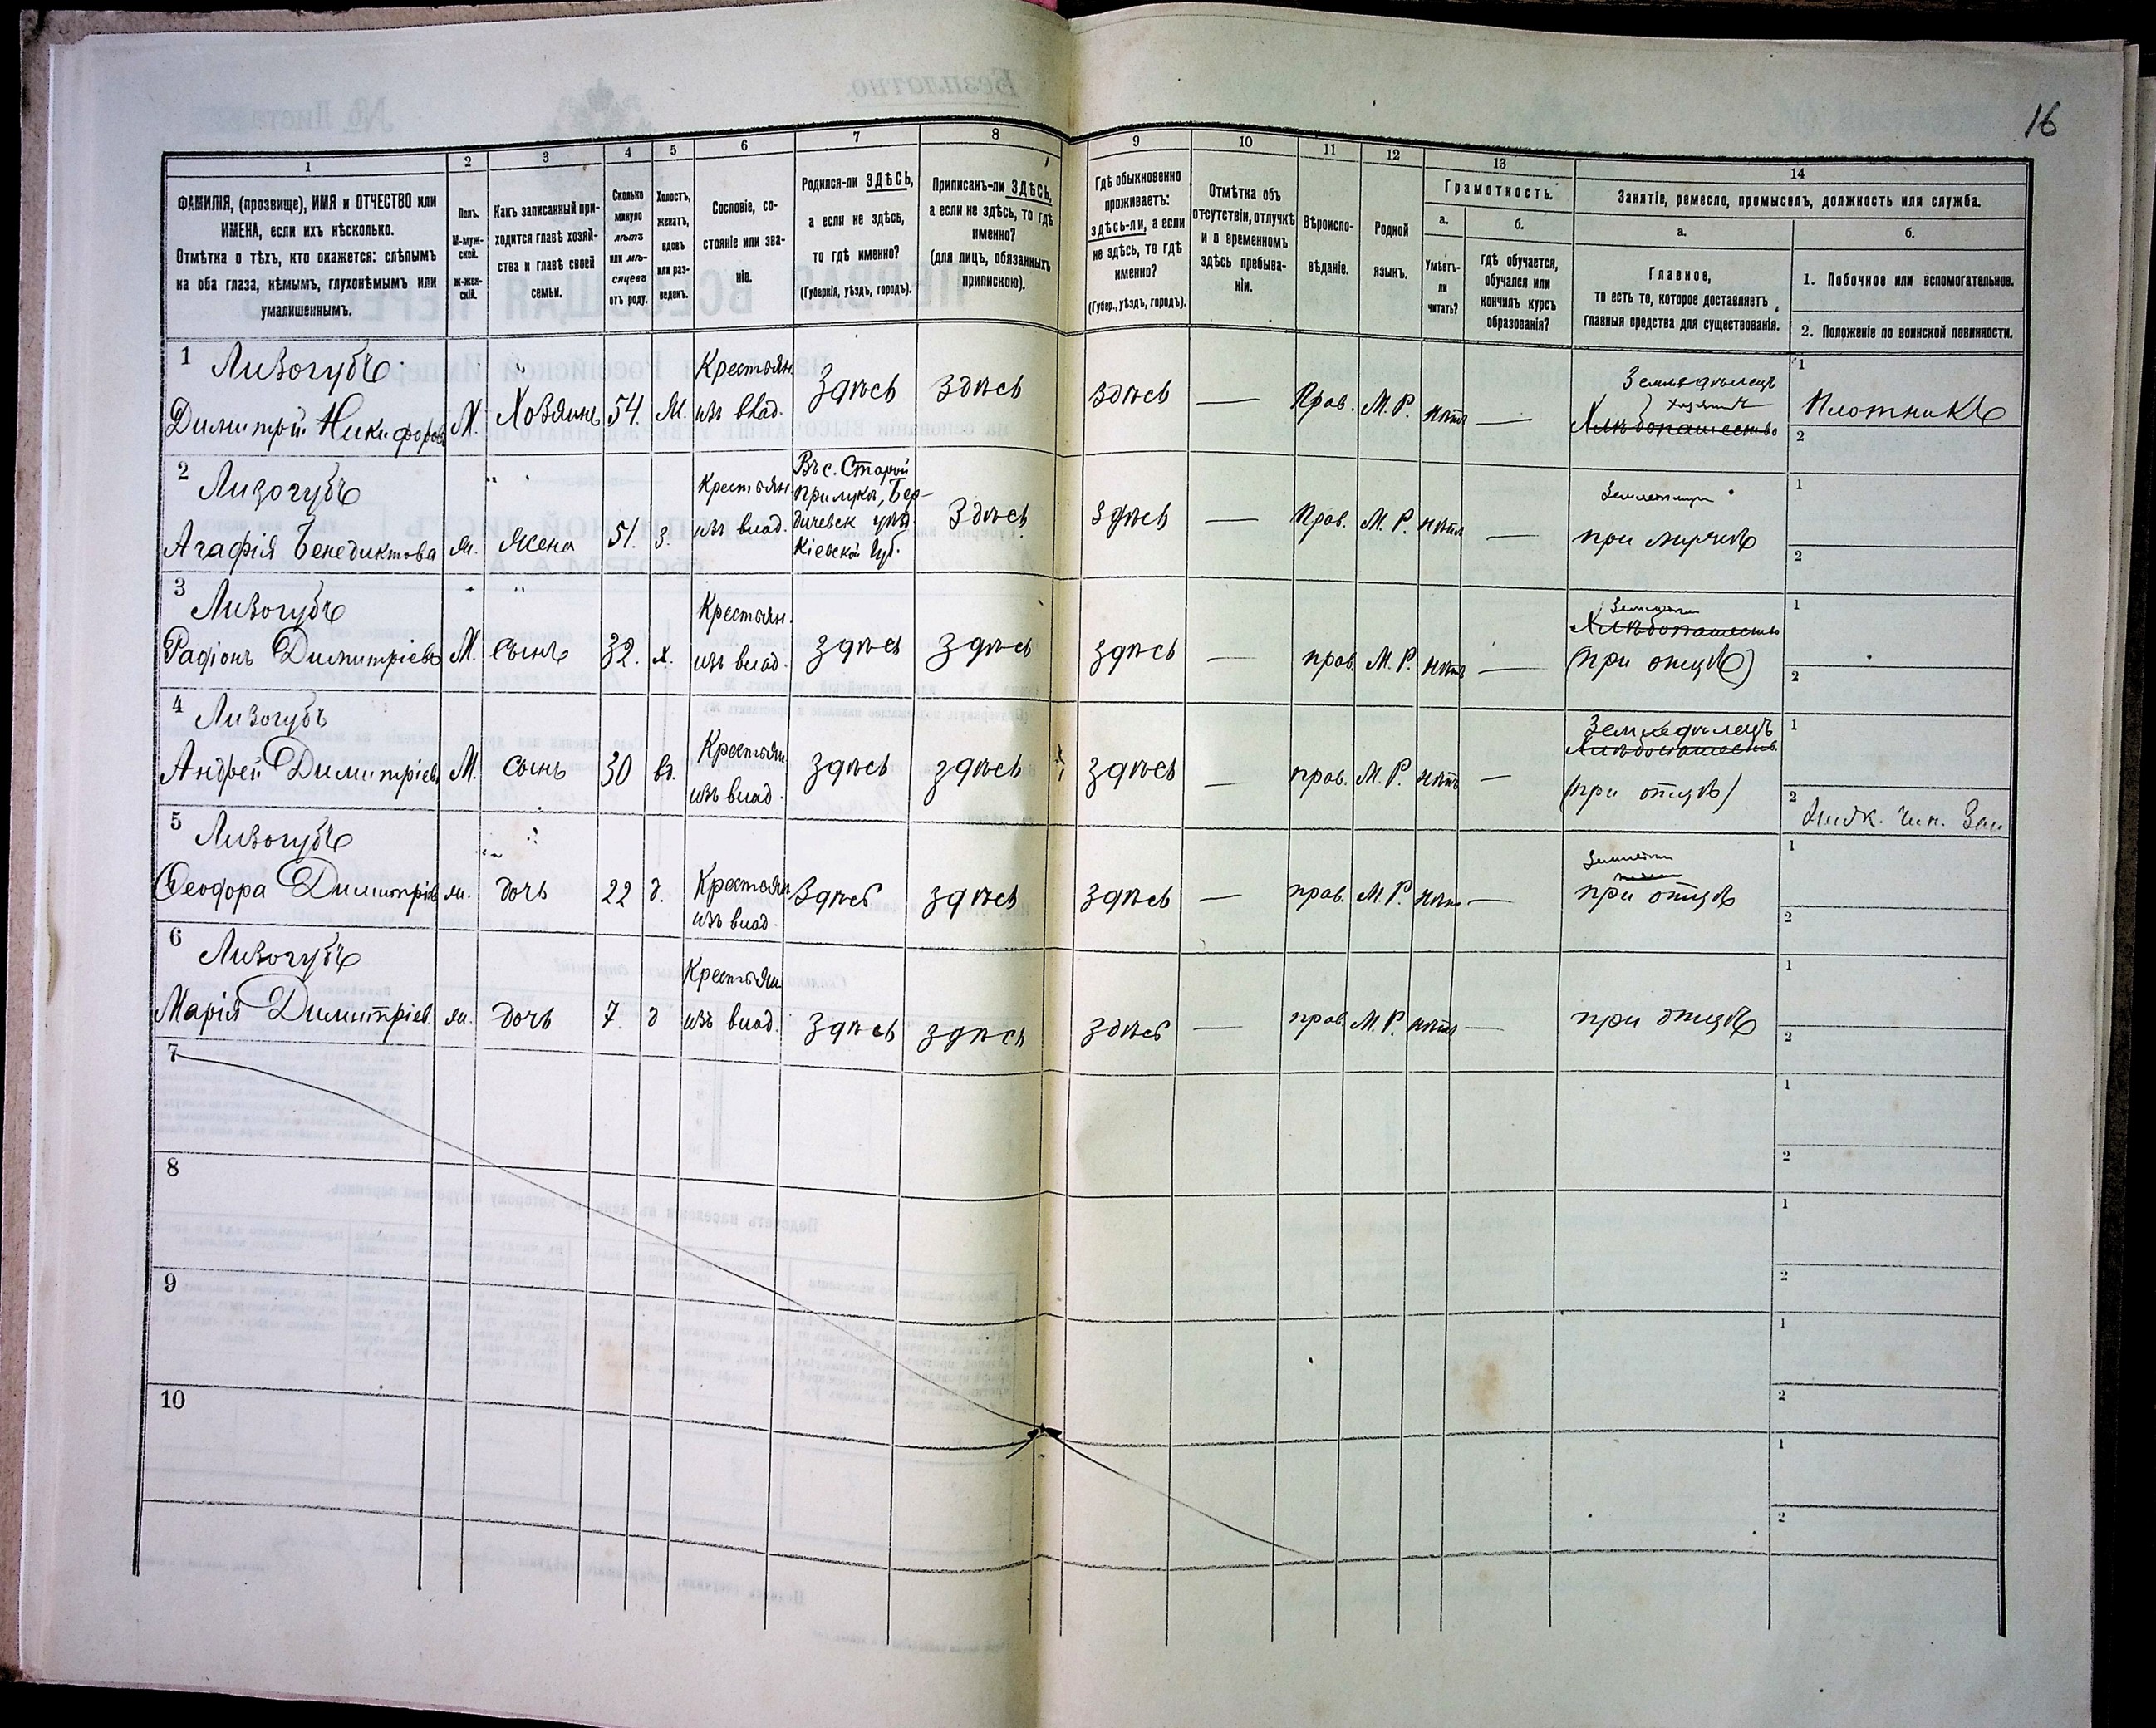 16
1
2
3
4
5
6
7
8
9
10
11
12
13
14
ФАМИЛІЯ, (прозвище), ИМЯ и ОТЧЕСТВО или
ИМЕНА, если ихъ нѣсколько.
Отмѣтка о тѣхъ, кто окажется: слѣпымъ
на оба глаза, нѣмымъ, глухонѣмымъ или
умалишеннымъ.
Полъ.
М-муж-
ской.
Ж-жен-
скій.
Какъ записанный при-
ходится главѣ хозяй-
ства и главѣ своей
семьи.
Сколько
минуло
лѣтъ
или мѣ-
сяцевъ
отъ роду.
Холостъ,
женатъ,
вдовъ
или раз-
веденъ.
Сословіе, со-
стояніе или зва-
ніе.
Родился-ли ЗДѢСЬ,
а если не здѣсь,
то гдѣ именно?
(Губернія, уѣздъ, городъ).
Приписанъ-ли ЗДѢСЬ,
а если не здѣсь, то гдѣ
именно?
(для лицъ, обязанныхъ
припискою).
Гдѣ обыкновенно
проживаетъ:
здѣсь-ли, а если
не здѣсь, то гдѣ
именно?
(Губер., уѣздъ, городъ).
Отмѣтка объ
отсутствіи, отлучкѣ
и о временномъ
здѣсь пребыва-
ніи.
Вѣроиспо-
вѣданіе.
Родной
языкъ.
Грамотность.
а.
Умѣетъ-
ли
читать?
б.
гдѣ обучается,
обучался или
кончилъ курсъ
образованія?
Занятіе, ремесло, промыселъ, должность или служба.
а.
Главное,
то есть то, которое доставляетъ
главныя средства для существованія.
б.
1. Побочное или вспомогательное.
2. Положеніе по воинской повинности.
1 Лизогубъ
Димитрій Никифоровъ М. Хозяинъ 54. Ж. Крестьян. изъ влад. Здѣсь здѣсь здѣсь — Прав. М. Р. нѣтъ — Земледѣлецъ хозяинъ Хлѣбопашество 1 Плотникъ
2
2 Лизогубъ
Агафія Бенедиктова ж. жена 51. з. Крестьян. изъ влад. Въ с. Старой
Прилукѣ, Бер-
дичевск уѣзд
Кіевской губ.
Здѣсь здѣсь — Прав. М. Р. нѣтъ — при мужѣ 1
2
3 Лизогубъ
Радіонъ Димитріевъ М. сынъ 32. х. Крестьян. изъ влад. здѣсь здѣсь здѣсь — прав. М. Р. нѣтъ — Хлѣбопашество
(при отцѣ) 1
2
4 Лизогубъ
Андрей Димитріевъ М. сынъ 30 вд. Крестьян. изъ влад. здѣсь здѣсь здѣсь — прав. М. Р. нѣтъ — Земледѣлецъ
Хлѣбопашество
(при отцѣ) 1
2 Нижн. чин. Зап.
5 Лизогубъ
Ѳеодора Димитріев ж. дочь 22 д. Крестьян изъ влад. Здѣсь здѣсь здѣсь — прав. М. Р. нѣтъ — при отцѣ 1
2
6 Лизогубъ
Марія Димитріев. ж. дочь 7. д Крестьян изъ влад. здѣсь здѣсь здѣсь — прав. М. Р. нѣтъ — при отцѣ 1
2
7
1
2
8
1
2
9
1
2
10
1
2